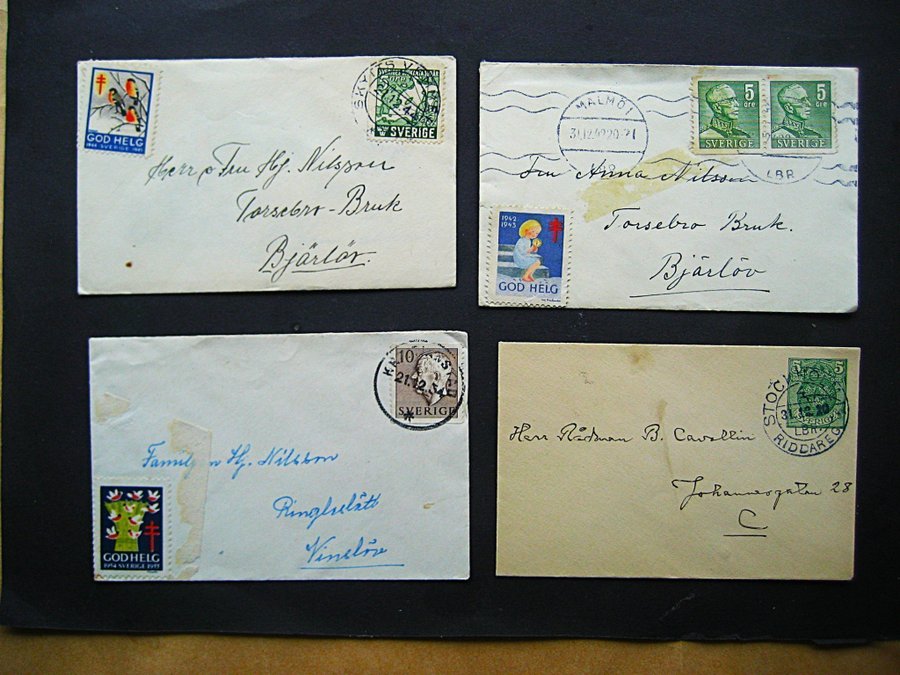 GOD HELG
1944 SVERIGE 1945
SVERIGE
Herr o Fru Hj. Nilsson
Torsebro-Bruk
Bjärlöv.
MALMÖ 1
31.12.42 20-21
5 öre
SVERIGE
5 öre
SVERIGE
LBR
Fru Anna Nilsson
Torsebro Bruk.
Bjärlöv
1942
1943
GOD HELG
10
SVERIGE
21.12.54
Familjen Hj. Nilsson
Ringluslätt
Vinslöv
GOD HELG
1954 SVERIGE 1955
5
STOCKHOLM
31.12
LBR
RIDDAREG
Herr Rådman B. Cavallin
Johannesgatan 28
C